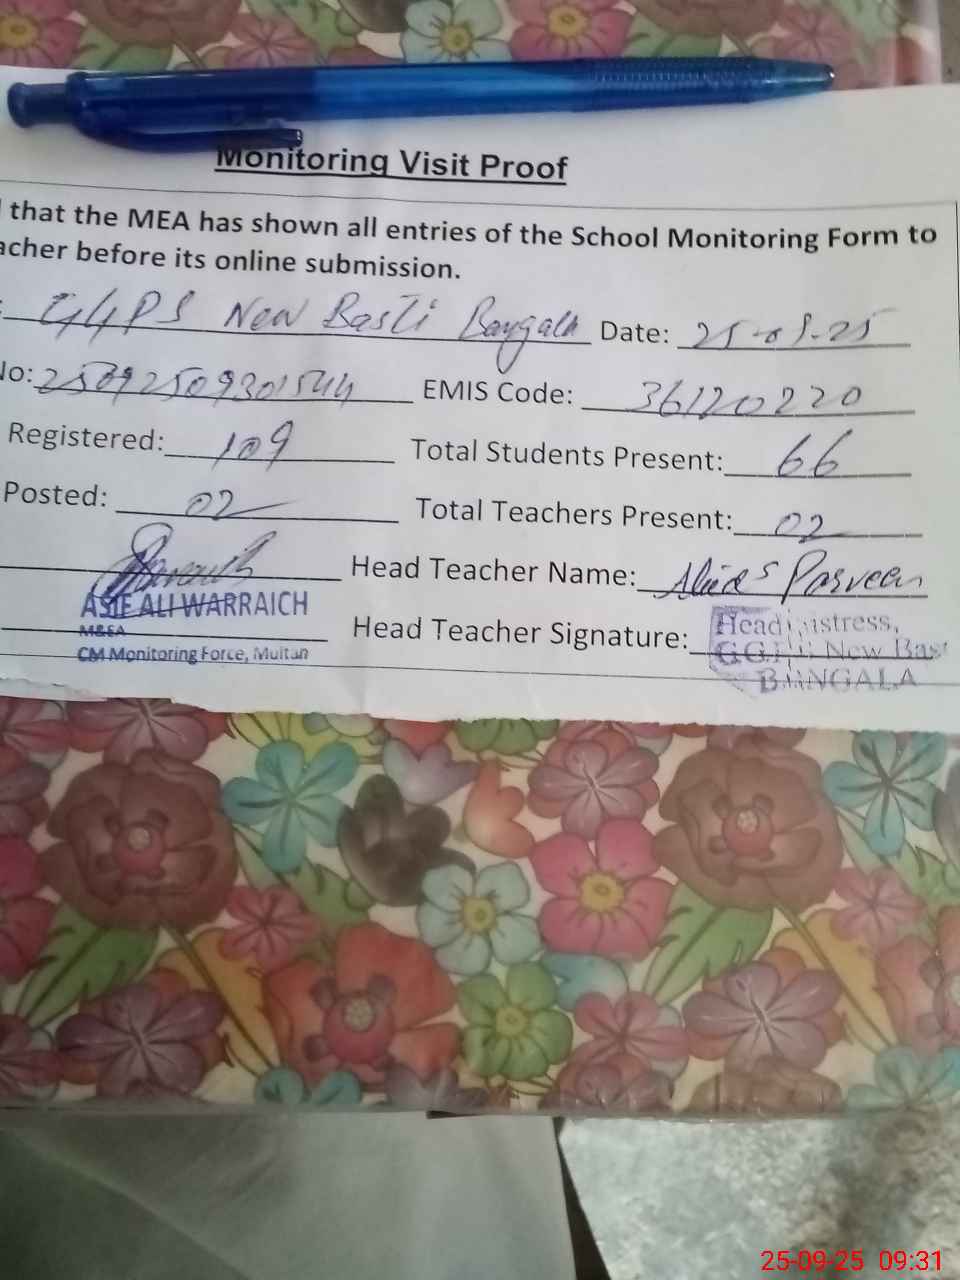 Monitoring Visit Proof
that the MEA has shown all entries of the School Monitoring Form to
acher before its online submission.
GGPS New Basti Bangala Date: 25-09-25
No: EMIS Code: 36120220
Registered: 109 Total Students Present: 66
Posted: 02 Total Teachers Present: 02
Head Teacher Name: Parveen
ASIF ALI WARRAICH
M&EA
CM Monitoring Force, Multan
Head Teacher Signature:
Headmistress,
New Bas
BANGALA
25-09-25 09:31